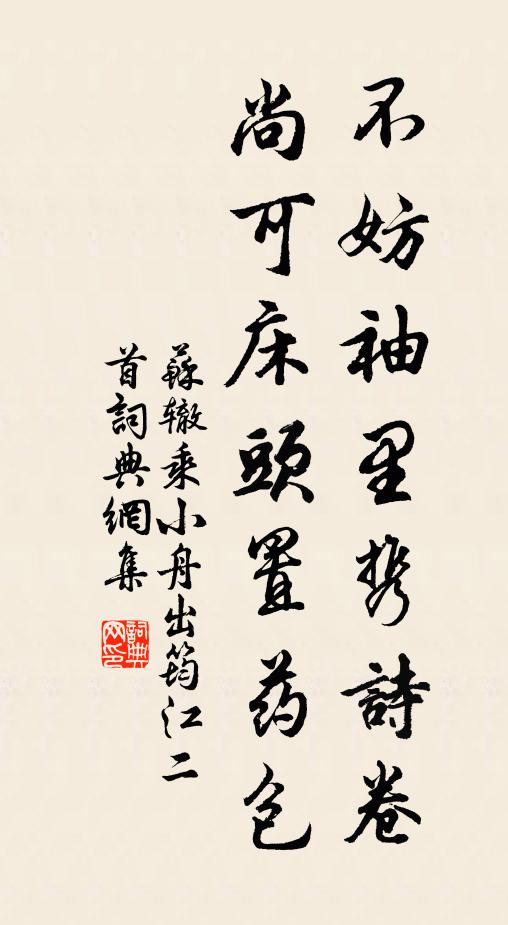 不妨袖里携詩卷
尚可床頭置药包
蘇辙乘小舟出筠江二
首詞典網集
詞典网印